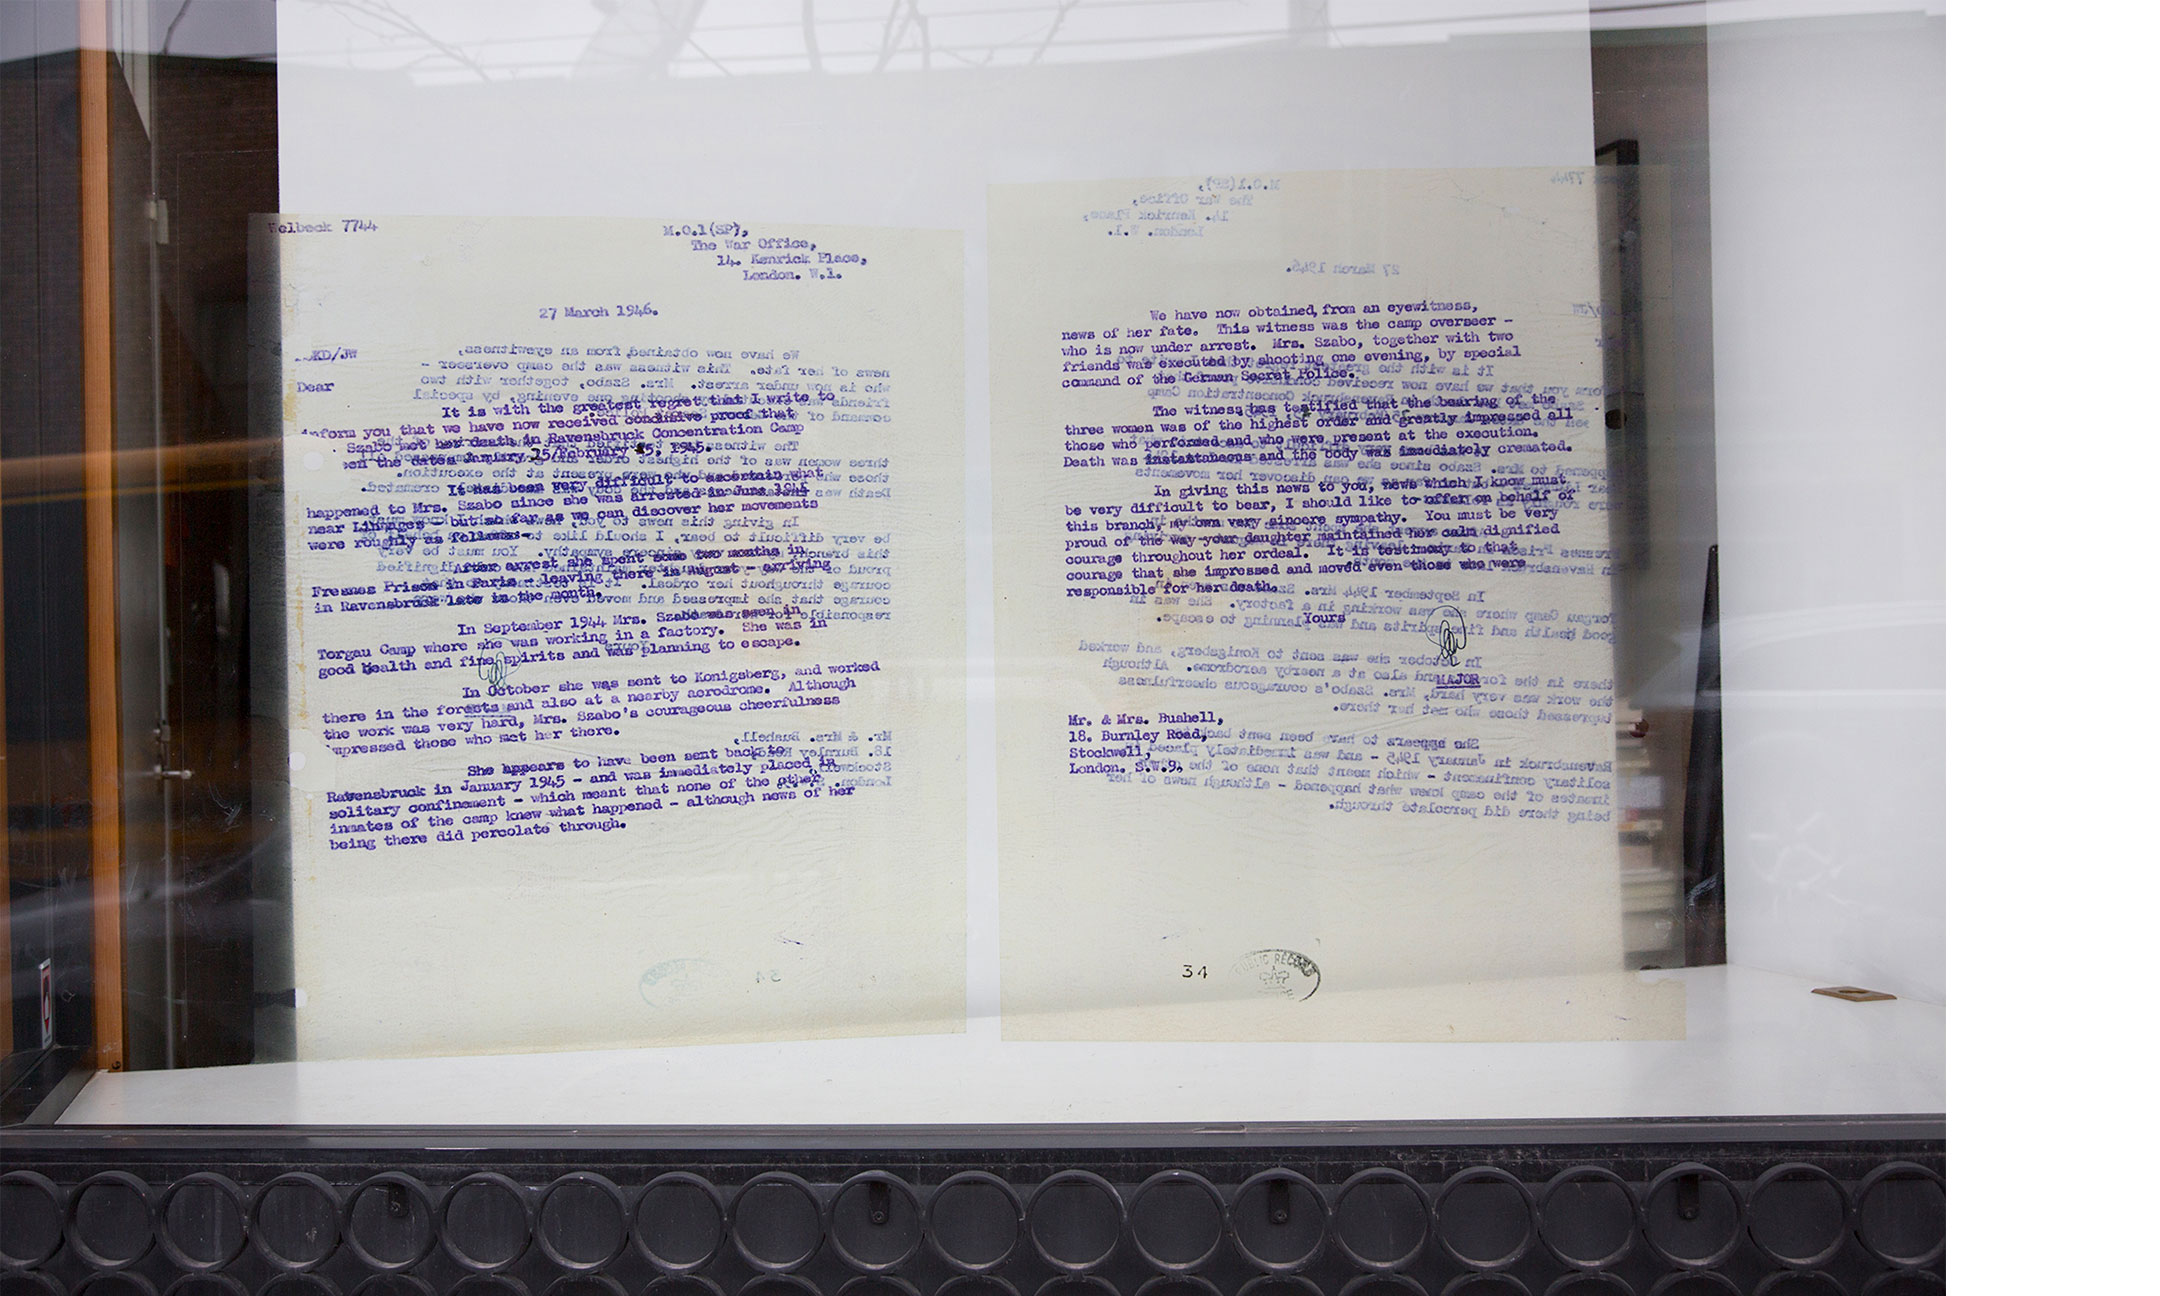 Welbeck 7744
M.O.1(SP),
The War Office,
14. Kenrick Place,
London. W.1.
27 March 1946.
KD/JW
Dear
It is with the greatest regret that I write to
inform you that we have now received conclusive proof that
Szabo met her death in Ravensbruck Concentration Camp
een the dates January 25/February 5, 1945.
It has been very difficult to ascertain what
happened to Mrs. Szabo since she was arrested in June 1944
near Limoges - but so far as we can discover her movements
were roughly as follows-
After arrest she spent some two months in
Fresnes Prison in Paris - leaving there in August - arriving
in Ravensbruck late in the month.
In September 1944 Mrs. Szabo was seen in
Torgau Camp where she was working in a factory. She was in
good health and fine spirits and was planning to escape.
In October she was sent to Konigsberg, and worked
there in the forests and also at a nearby aerodrome. Although
the work was very hard, Mrs. Szabo's courageous cheerfulness
impressed those who met her there.
She appears to have been sent back to
Ravensbruck in January 1945 - and was immediately placed in
solitary confinement - which meant that none of the other
inmates of the camp knew what happened - although news of her
being there did percolate through.
We have now obtained, from an eyewitness,
news of her fate. This witness was the camp overseer -
who is now under arrest. Mrs. Szabo, together with two
friends was executed by shooting one evening, by special
command of the German Secret Police.
The witness has testified that the bearing of the
three women was of the highest order and greatly impressed all
those who performed and who were present at the execution.
Death was instantaneous and the body was immediately cremated.
In giving this news to you, news which I know must
be very difficult to bear, I should like to offer on behalf of
this branch, my own very sincere sympathy. You must be very
proud of the way your daughter maintained her calm dignified
courage throughout her ordeal. It is testimony to that
courage that she impressed and moved even those who were
responsible for her death.
Yours
MAJOR
Mr. & Mrs. Bushell,
18. Burnley Road,
Stockwell,
London. S.W.9.
34
PUBLIC RECORD